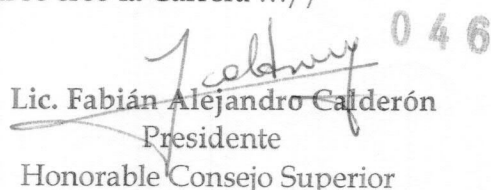 la Carrera ...//
046
Lic. Fabián Alejandro Calderón
Presidente
Honorable Consejo Superior